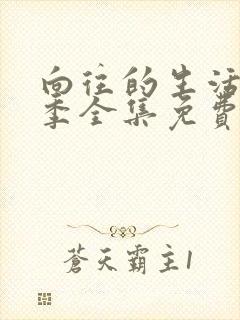 向往的生活
季全集免費
蒼天霸主1